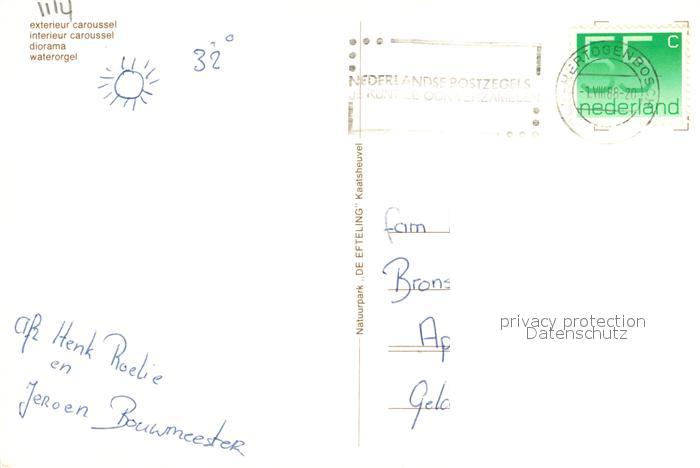 1114
exterieur caroussel
interieur caroussel
diorama
waterorgel
32°
NEDERLANDSE POSTZEGELS
JE KUNT ZE OOK VERZAMELEN
'S-HERTOGENBOSCH
-1.VIII.88-20
55 c
nederland
Natuurpark „DE EFTELING" Kaatsheuvel
fam
Brons
Ap
Gelo
privacy protection
Datenschutz
afz Henk Roelie
en
Jeroen Bouwmeester